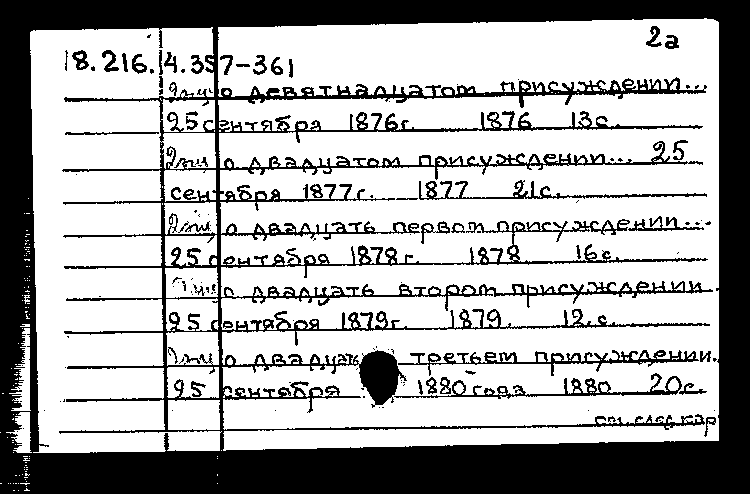 2а
18.216.4.357-361
о девятнадцатом присуждении...
25 сентября 1876г. 1876 13с.
о двадцатом присуждении... 25
сентября 1877г. 1877 21с.
о двадцать первом присуждении...
25 сентября 1878г. 1878 16с.
о двадцать втором присуждении
25 сентября 1879г. 1879. 12.с.
о двадцать третьем присуждении.
25 сентября 1880 года 1880 20с.
см. след. кар